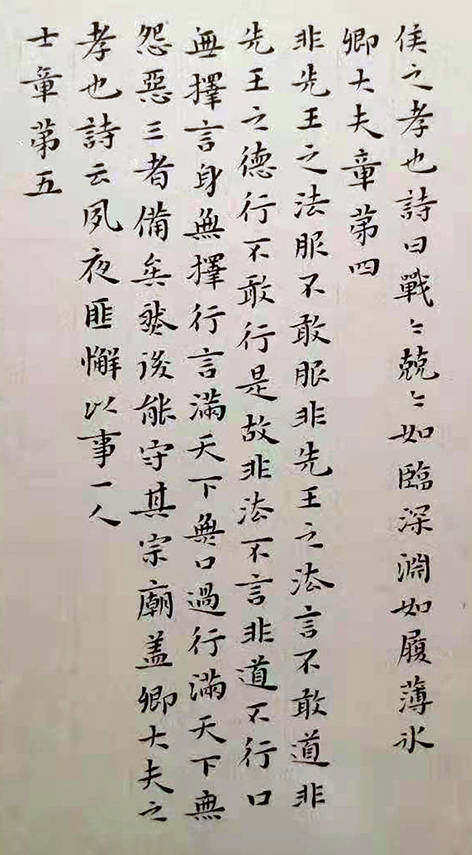 侯之孝也詩曰戰〻兢〻如臨深淵如履薄氷
卿大夫章苐四
非先王之法服不敢服非先王之法言不敢道非
先王之德行不敢行是故非法不言非道不行口
無擇言身無擇行言滿天下無口過行滿天下無
怨惡三者備矣然後能守其宗廟盖卿大夫之
孝也詩云夙夜匪懈以事一人
士章苐五